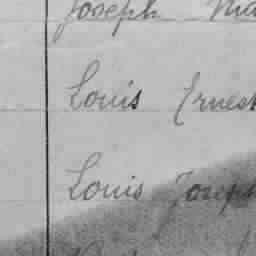 Joseph Ma
Louis Ernest
Louis Joseph